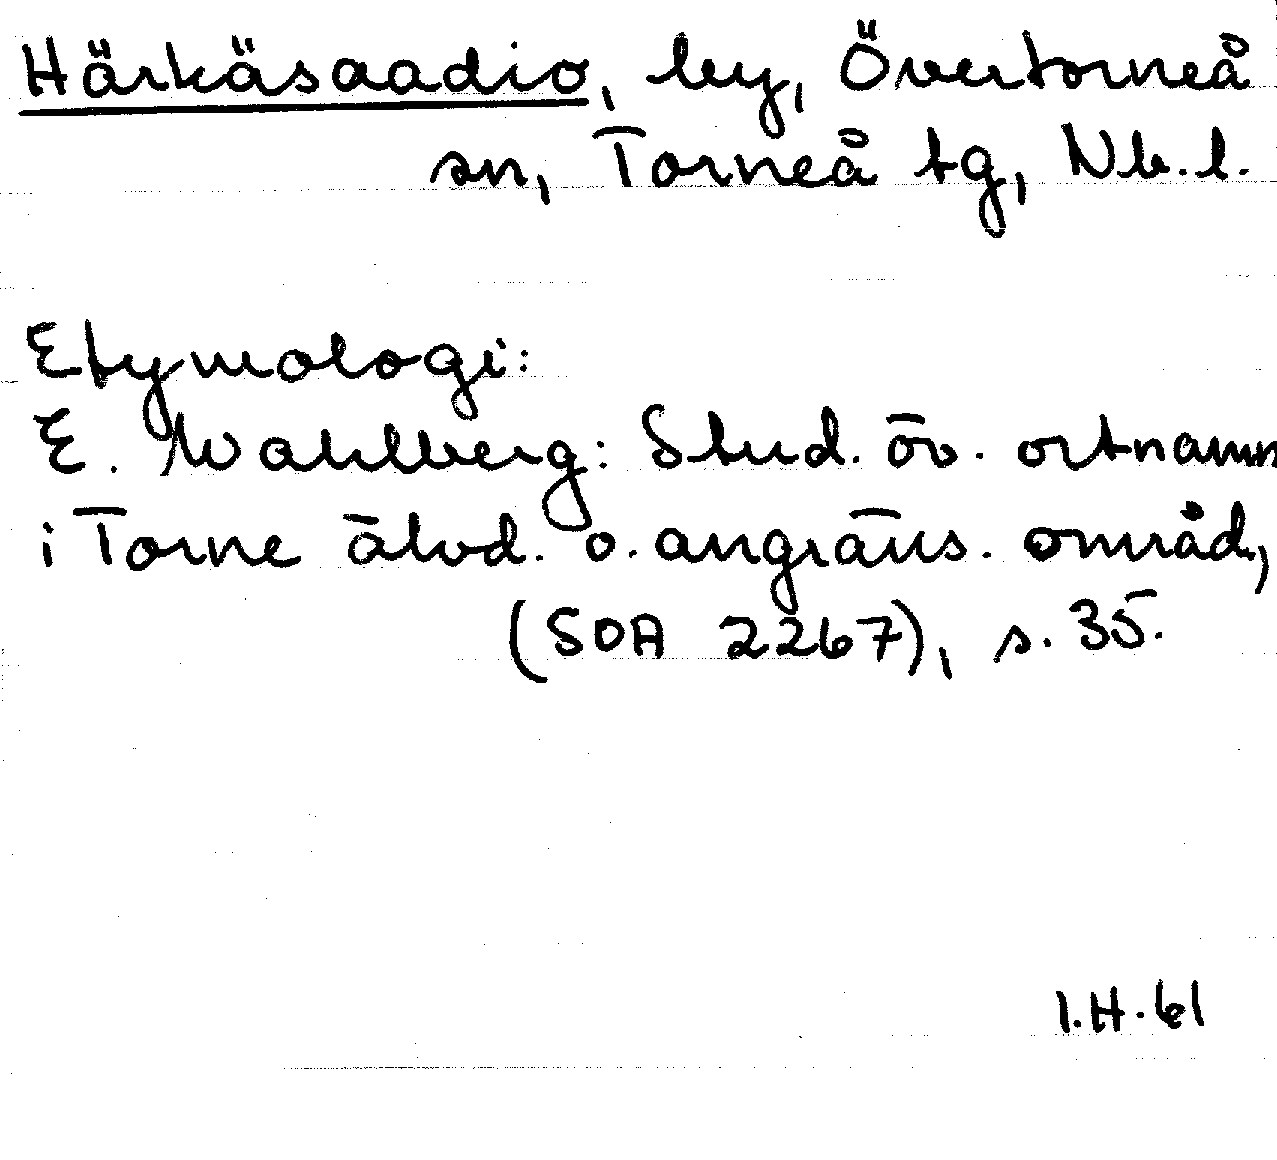 Härkäsaadio, by, Övertorneå
sn, Torneå tg, Nb.l.
Etymologi:
E. Wahlberg: Stud. öv. ortnamn
i Torne älvd. o. angräns. områd,
(SOA 2267), s. 35.
I.H. 61